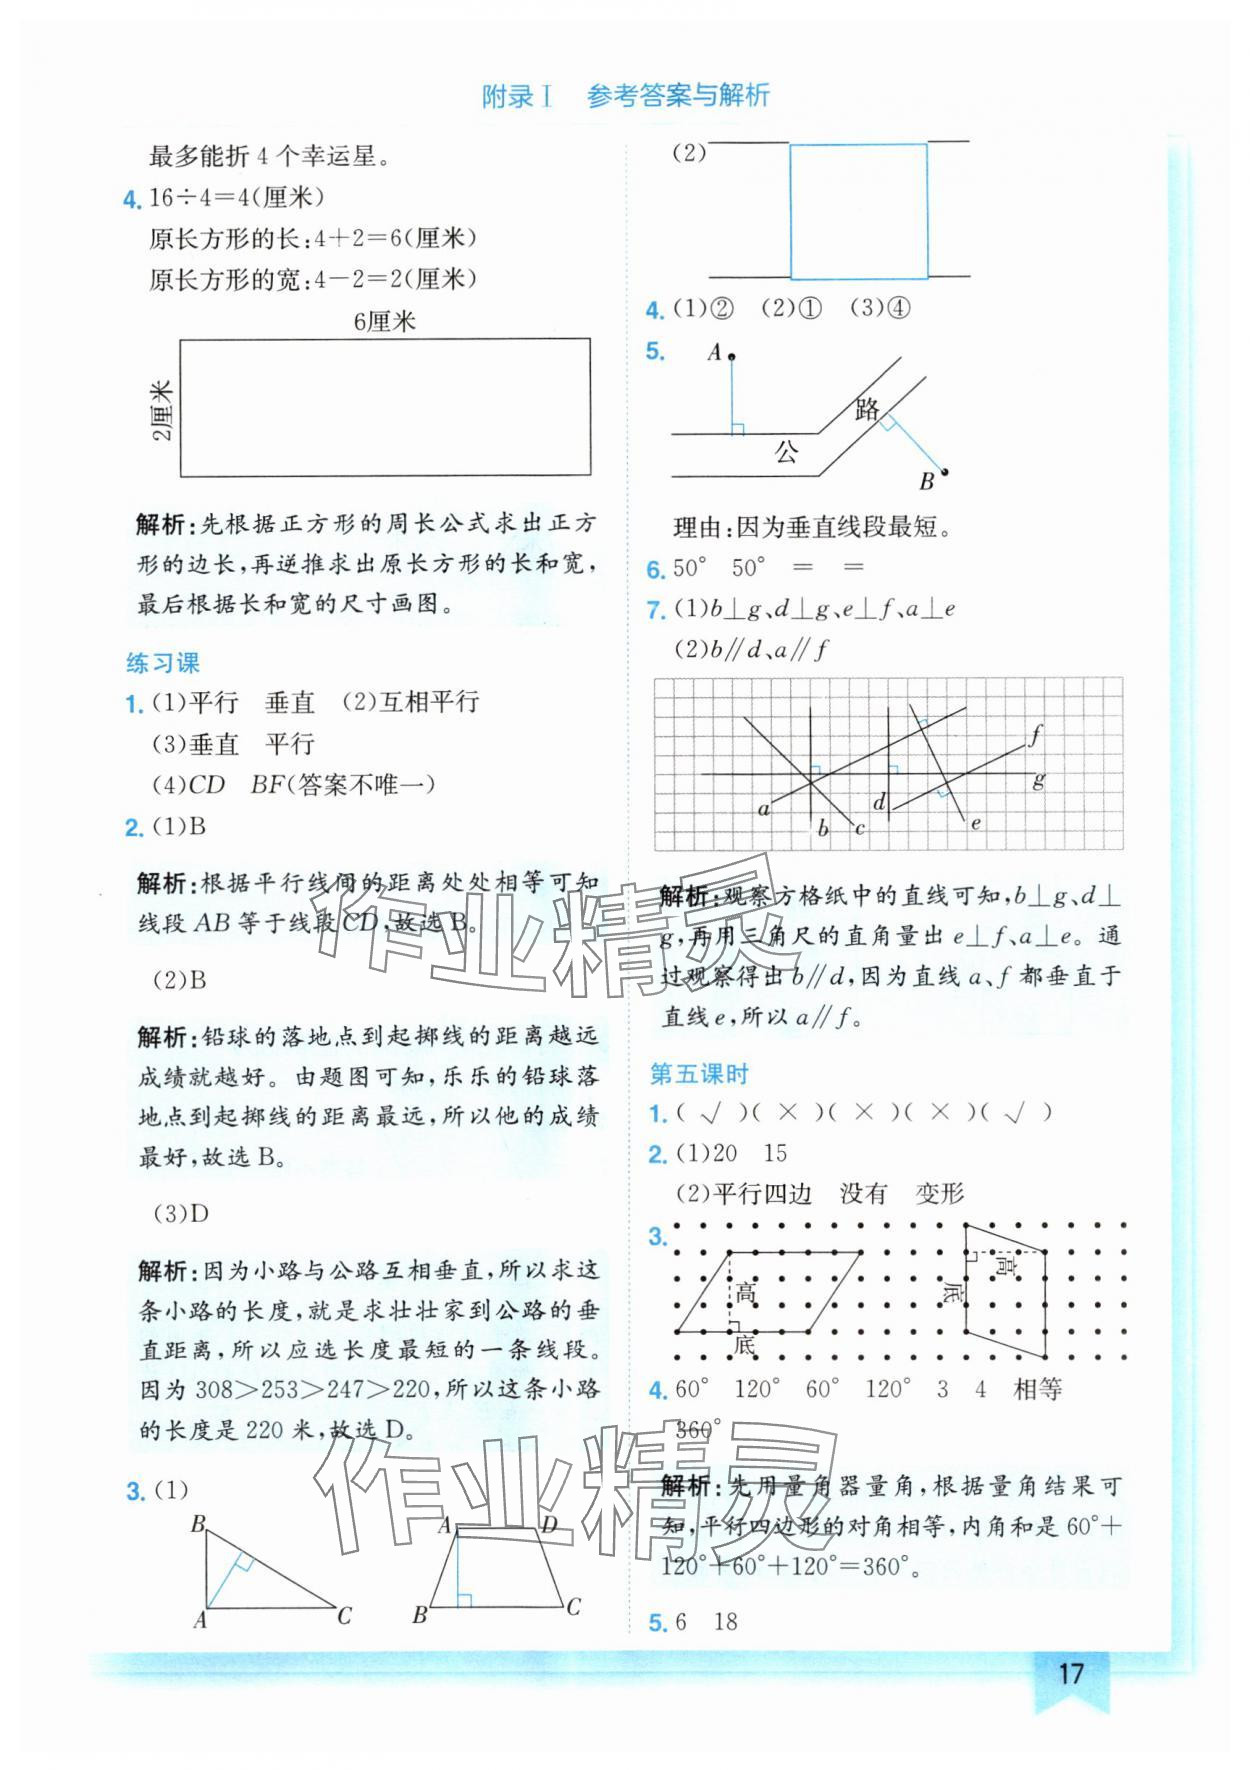 附录Ⅰ 参考答案与解析
最多能折 4 个幸运星。
4. 16÷4=4(厘米)
原长方形的长:4+2=6(厘米)
原长方形的宽:4-2=2(厘米)
6厘米
2厘米
解析:先根据正方形的周长公式求出正方
形的边长,再逆推求出原长方形的长和宽,
最后根据长和宽的尺寸画图。
练习课
1. (1)平行 垂直 (2)互相平行
(3)垂直 平行
(4)CD BF(答案不唯一)
2. (1)B
解析:根据平行线间的距离处处相等可知
线段 AB 等于线段 CD,故选 B。
(2)B
解析:铅球的落地点到起掷线的距离越远
成绩就越好。由题图可知,乐乐的铅球落
地点到起掷线的距离最远,所以他的成绩
最好,故选 B。
(3)D
解析:因为小路与公路互相垂直,所以求这
条小路的长度,就是求壮壮家到公路的垂
直距离,所以应选长度最短的一条线段。
因为 308>253>247>220,所以这条小路
的长度是 220 米,故选 D。
3. (1)
B
A
C
A
D
B
C
(2)
4. (1)② (2)① (3)④
5.
A
路
公
B
理由:因为垂直线段最短。
6. 50° 50° = =
7. (1)b⊥g、d⊥g、e⊥f、a⊥e
(2)b∥d、a∥f
f
g
a
b
c
d
e
解析:观察方格纸中的直线可知,b⊥g、d⊥
g,再用三角尺的直角量出 e⊥f、a⊥e。通
过观察得出 b∥d,因为直线 a、f 都垂直于
直线 e,所以 a∥f。
第五课时
1. ( √ )( × )( × )( × )( √ )
2. (1)20 15
(2)平行四边 没有 变形
3.
高
底
高
底
4. 60° 120° 60° 120° 3 4 相等
360°
解析:先用量角器量角,根据量角结果可
知,平行四边形的对角相等,内角和是 60°+
120°+60°+120°=360°。
5. 6 18
17
作业精灵
作业精灵